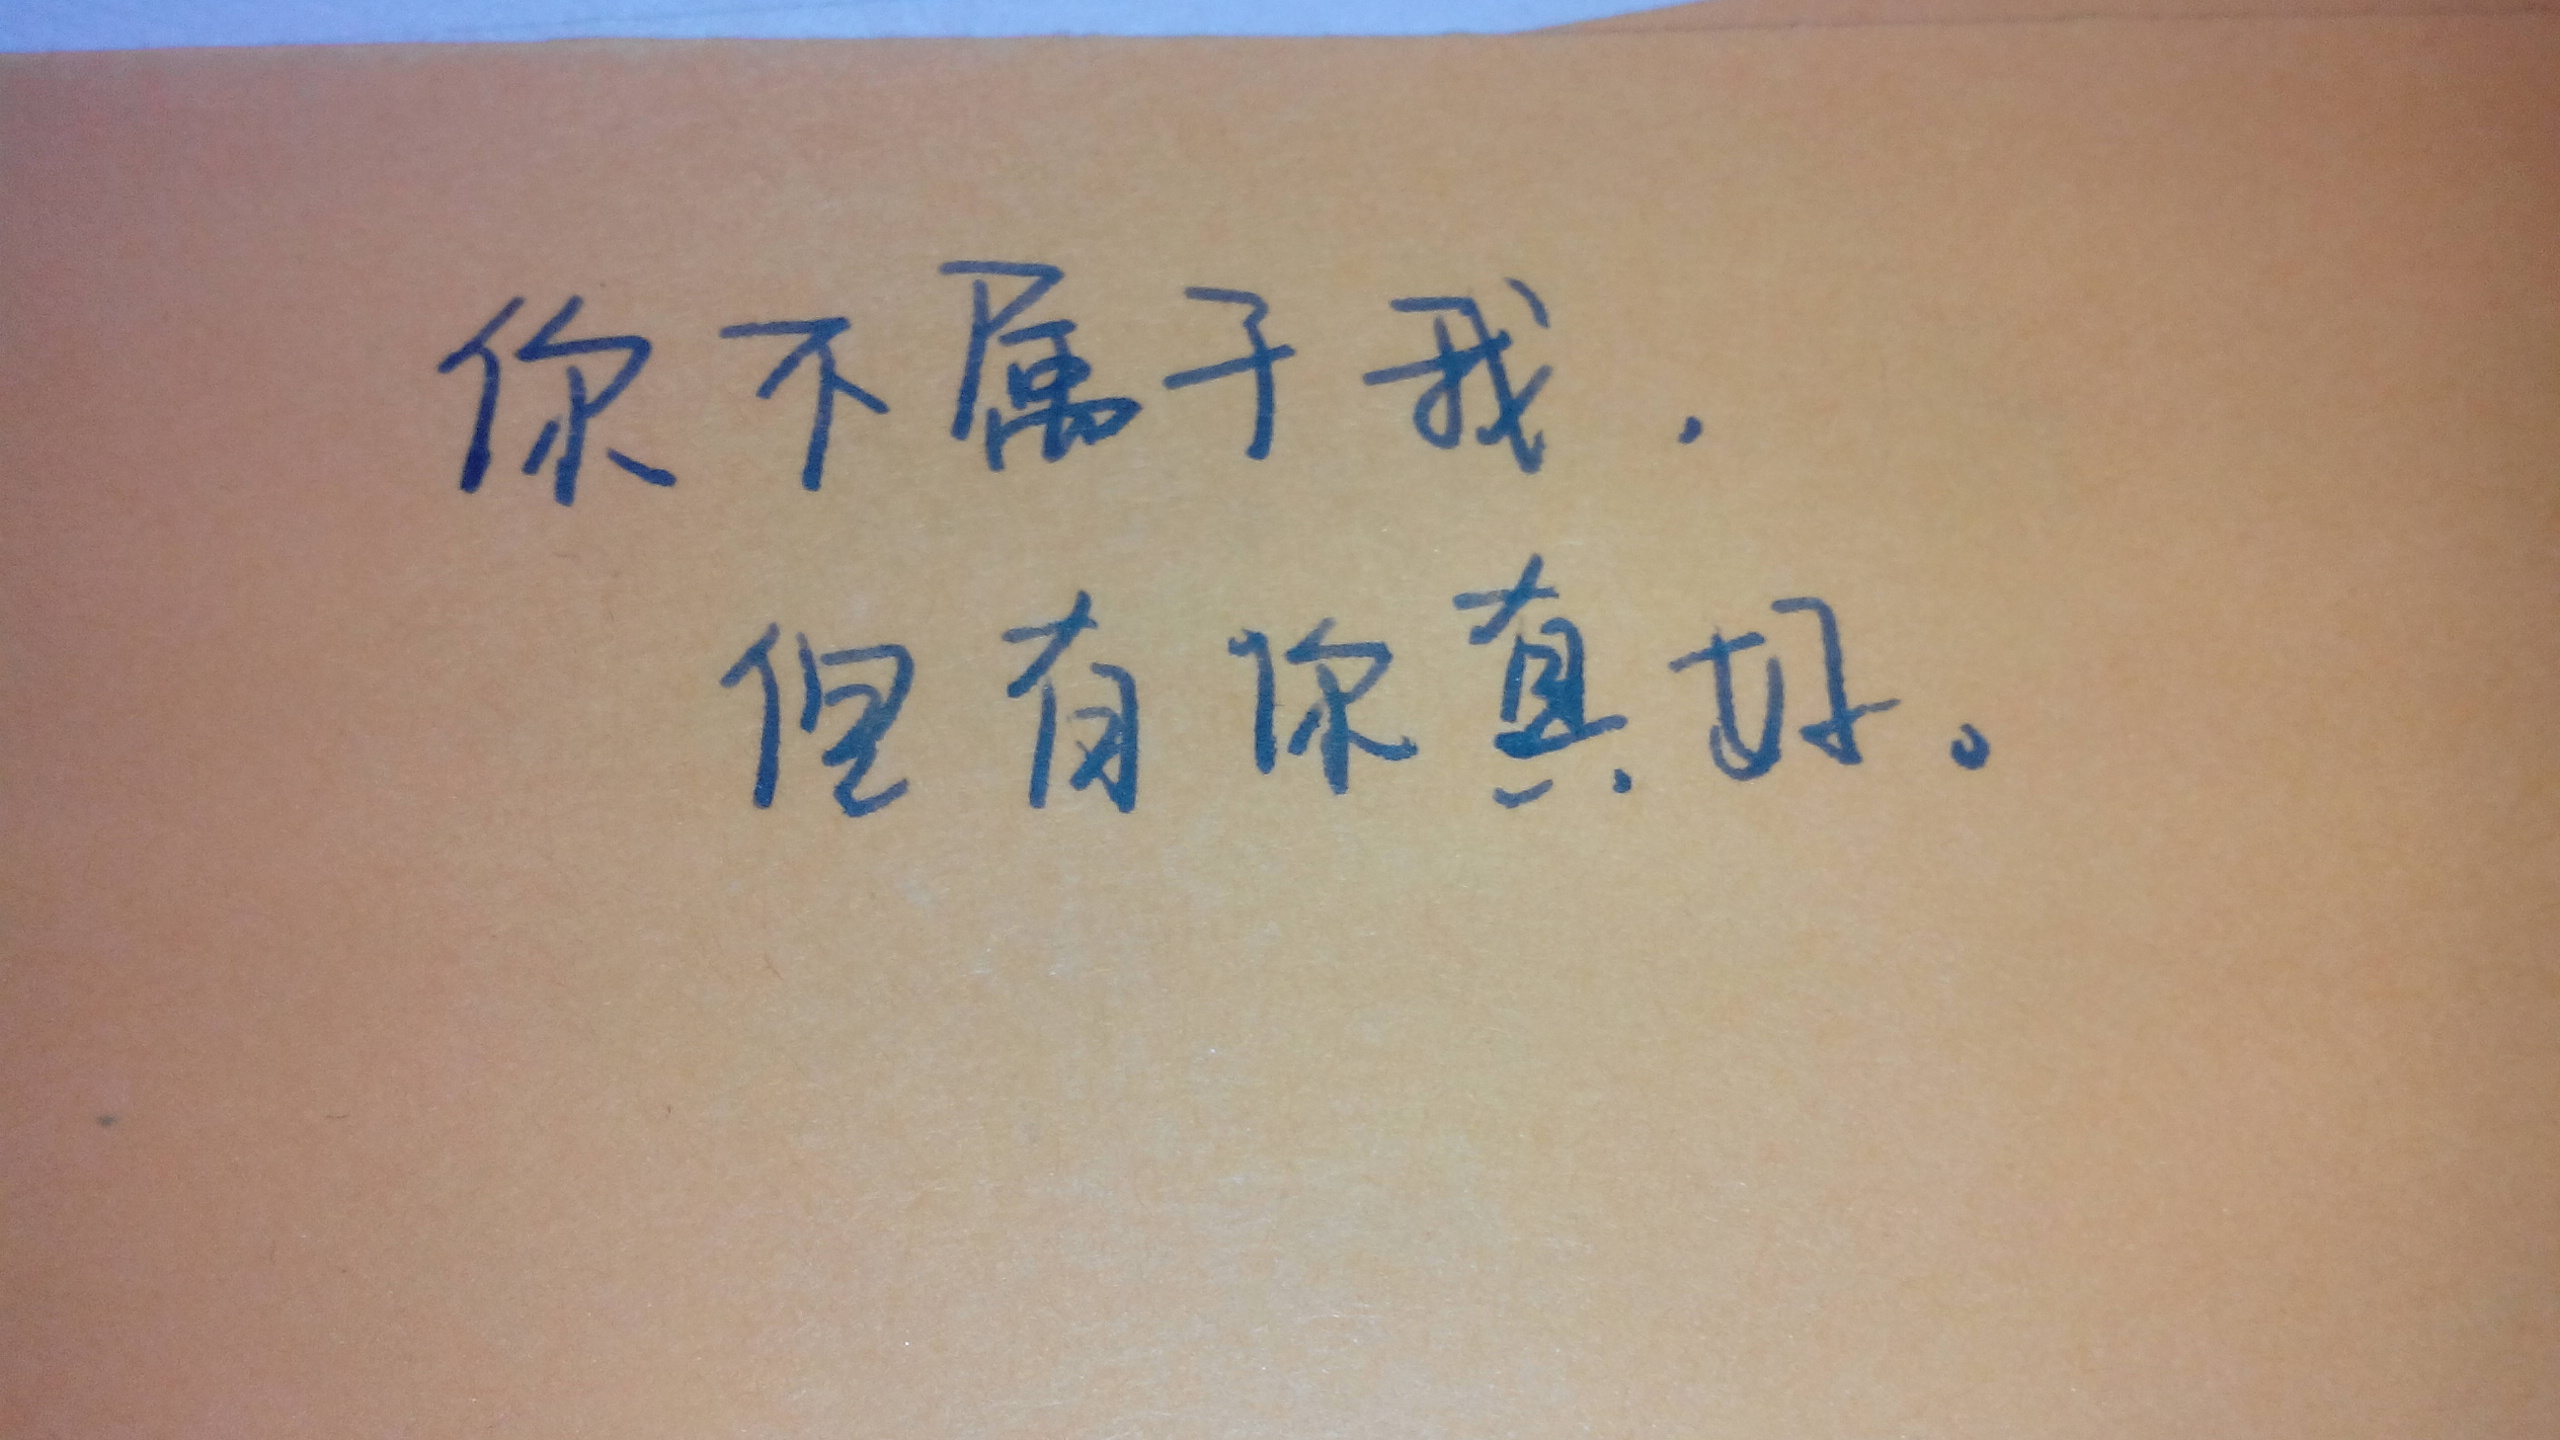 你不属于我，
但有你真好。